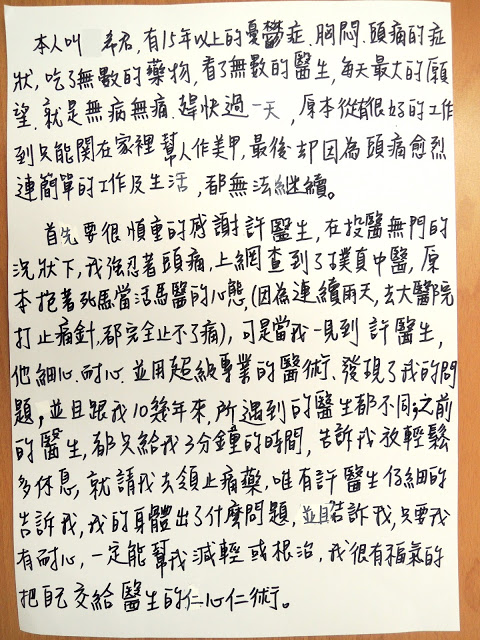 本人叫 希君,有15年以上的憂鬱症.胸悶.頭痛的症
狀,吃了無數的藥物,看了無數的醫生,每天最大的願
望.就是無病無痛.趕快過一天,原本從有很好的工作
到只能関在家裡幫人作美甲,最後却因為頭痛愈烈
連簡單的工作及生活,都無法継續。
首先要很慎重的感謝許醫生,在投醫無門的
況狀下,我強忍著頭痛,上網查到了璞真中醫,原
本抱著死馬當活馬醫的心態,(因為連續兩天,去大醫院
打止痛針,都完全止不了痛),可是當我一見到 許醫生,
他細心.耐心.並用超級專業的醫術、發現了我的問
題,並且跟我10幾年來,所遇到的醫生都不同;之前
的醫生,都只給我3分鐘的時間,告訴我放輕鬆
多休息,就請我去領止痛藥,唯有許醫生仔細的
告訴我,我的身體出了什麼問題,並且告訴我,只要我
有耐心,一定能幫我減輕或根治,我很有福氣的
把自己交給醫生的仁心仁術。